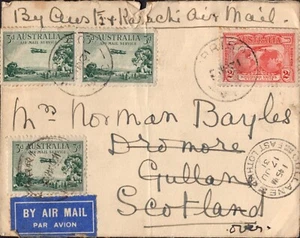 By Aust & Karachi Air Mail.
3D AUSTRALIA
AIR MAIL SERVICE
3D AUSTRALIA
AIR MAIL SERVICE
AUSTRALIA
Mrs Norman Bayles
Dromore
Gullane
Scotland
over.
3D AUSTRALIA
AIR MAIL SERVICE
BY AIR MAIL
PAR AVION
GULLANE
EAST LOTHIAN